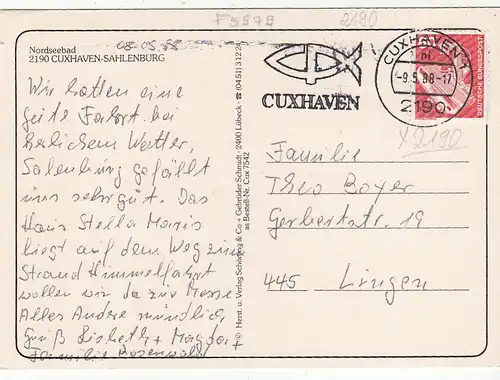 F5979
2190
Nordseebad
2190 CUXHAVEN-SAHLENBURG
08.05.88
Wir hatten eine
gute Fahrt bei
herlichem Wetter,
Salenburg gefällt
uns sehr gut. Das
Haus Stella Maris
liegt auf dem Weg zum
Strand Himmelfahrt
wollen wir da zur Messe
Alles Andere mündlich
Gruß Lisbeth + Magda +
Familie Rosenwald
© Herst. u. Verlag Schöning & Co + Gebrüder Schmidt · 2400 Lübeck · ☎ (04 51) 3 12 24
as Bestell-Nr. Cux 7542
CUXHAVEN
CUXHAVEN 1
- 9.5.88 - 17
2190
DEUTSCHE BUNDESPOST
X2190
Familie
Theo Boyer
Gerbertstr. 19
445 Lingen